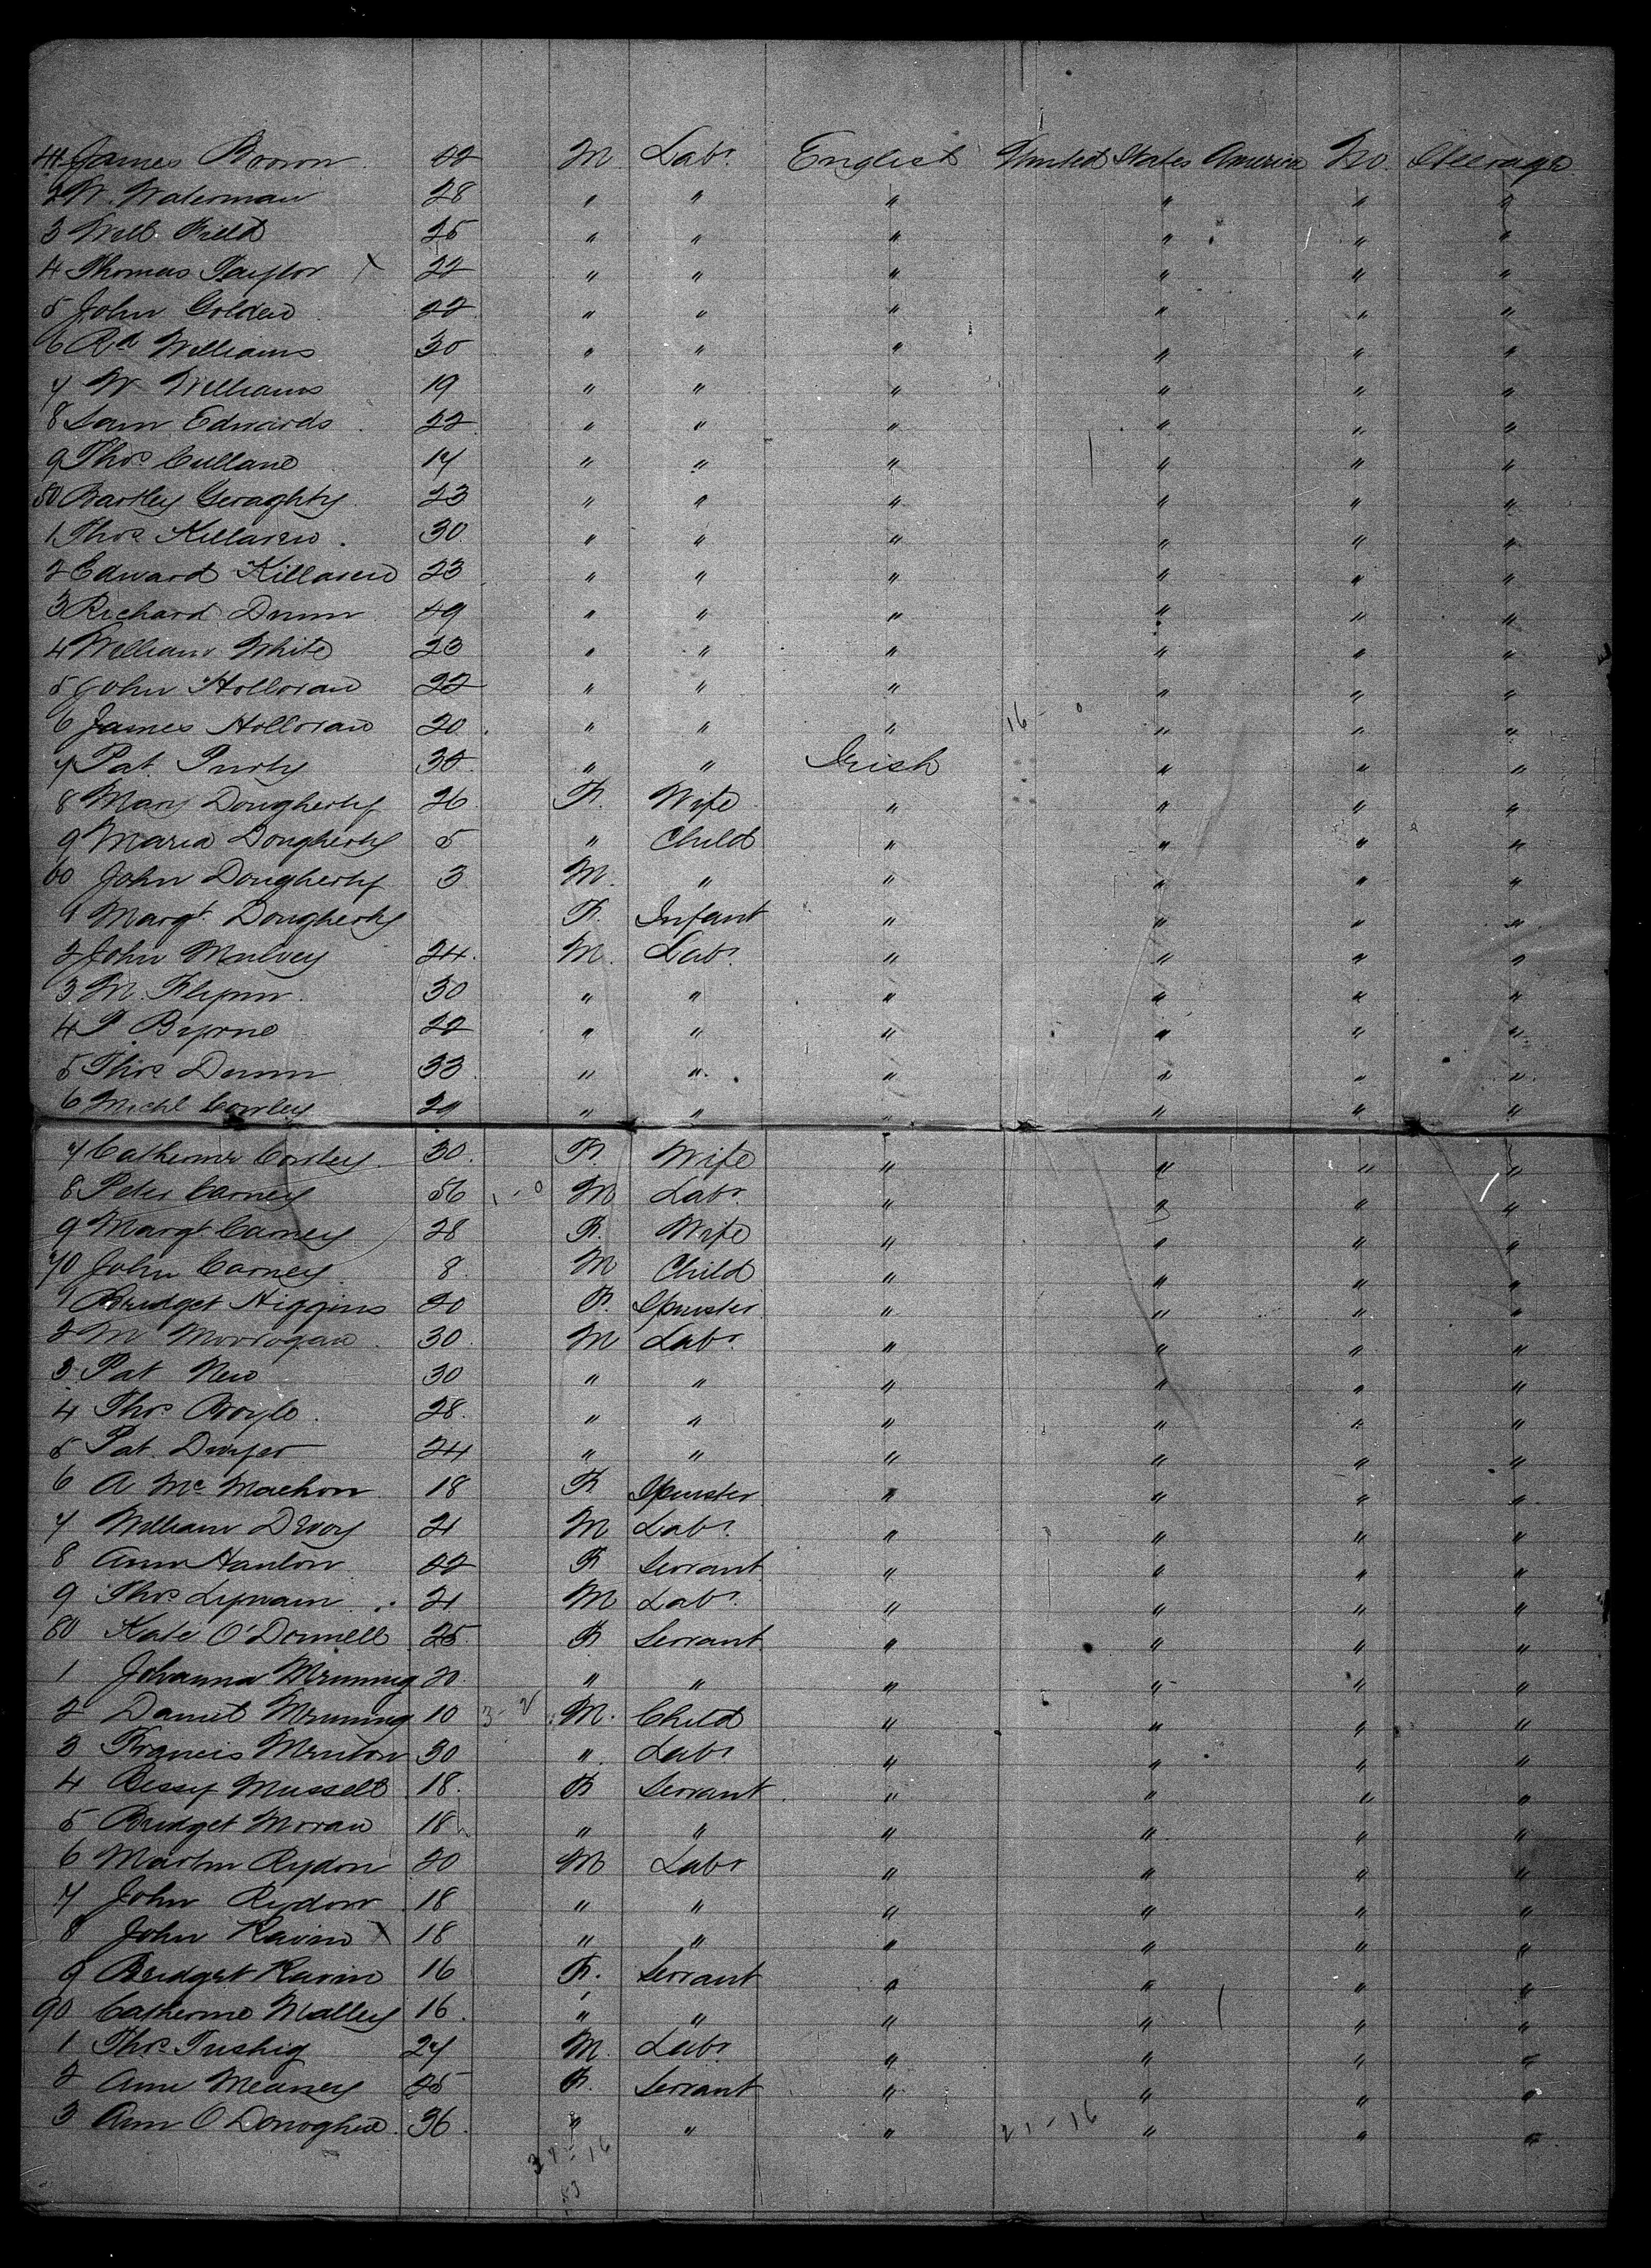 41 James Brown 22 M. Labr. English United States America No. Steerage
2 W. Waterman 28 " " " " " "
3 Will. Field 25 " " " " " "
4 Thomas Taylor X 22 " " " " " "
5 John Golden 22 " " " " " "
6 Rd Williams 30 " " " " " "
7 W Williams 19 " " " " " "
8 Sam Edwards 22 " " " " " "
9 Thos Cullane 17 " " " " " "
50 Bartley Geraghty 23 " " " " " "
1 Thos Killaren 30 " " " " " "
2 Edward Killaren 23 " " " " " "
3 Richard Dunn 49 " " " " " "
4 William White 23 " " " " " "
5 John Holloran 22 " " " " " "
6 James Holloran 20 " " " 16 - 0 " " "
7 Pat. Purty 30 " " Irish " " "
8 Mary Dougherty 26 F. Wife " " " "
9 Maria Dougherty 5 " Child " " " "
60 John Dougherty 3 M. " " " " "
1 Margt. Dougherty F. Infant " " " "
2 John Mulvey 24 M. Labr. " " " "
3 M. Flynn 30 " " " " " "
4 P. Byrne 22 " " " " " "
5 Thos Dunn 33 " " " " " "
6 Michl Cowley 29 " " " " " "
7 Catherine Cowley 30 F. Wife " " " "
8 Peter Carney 56 1 - 0 M Labr " " " "
9 Margt. Carney 28 F. Wife " " " "
70 John Carney 8 M Child " " " "
1 Bridget Higgins 20 F. Spinster " " " "
2 M Morrogan 30 M Labr. " " " "
3 Pat New 30 " " " " " "
4 Thos Boyle 28 " " " " " "
5 Pat. Dwyer 24 " " " " " "
6 A McMachon 18 F Spinster " " " "
7 William Devoy 21 M Labr. " " " "
8 Ann Hanlon 22 F Servant " " " "
9 Thos Lynam 21 M Labr. " " " "
80 Kate O'Donnell 25 F Servant " " " "
1 Johanna 20 " " " " " "
2 Daniel 10 3 - 2 M. Child " " " "
3 Francis 30 " Labr " " " "
4 Bessy Mussell 18 F Servant " " " "
5 Bridget Moran 18 " " " " " "
6 Martin Rydon 20 M Labr " " " "
7 John Rydon 18 " " " " " "
8 John Kavin X 18 " " " " " "
9 Bridget Kavin 16 F. Servant " " " "
90 Catherine Malley 16 " " " " " "
1 Thos. Tushig 27 M. Labr. " " " "
2 Ann Meaney 25 F. Servant " " " "
3 Ann O Donoghue 36 " " " 21 - 16 " " "
37 - 16